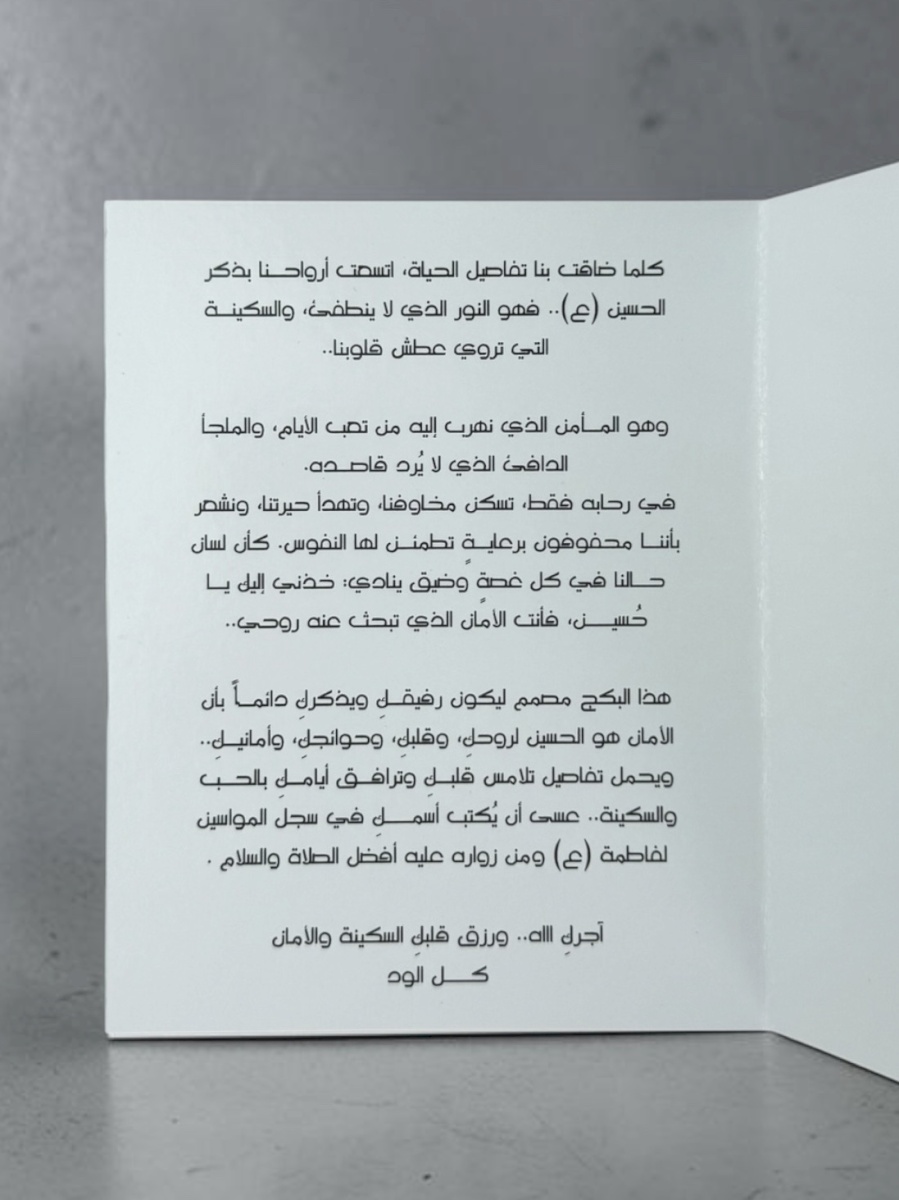 كلما ضاقت بنا تفاصيل الحياة، اتسعت أرواحنا بذكر
الحسين (ع).. فهو النور الذي لا ينطفئ، والسكينة
التي تروي عطش قلوبنا..
وهو المأمن الذي نهرب إليه من تعب الأيام، والملجأ
الدافئ الذي لا يُرد قاصده.
في رحابه فقط، تسكن مخاوفنا، وتهدأ حيرتنا، ونشعر
بأننا محفوفون برعايةٍ تطمئن لها النفوس. كأن لسان
حالنا في كل غصةٍ وضيق ينادي: خذني إليك يا
حُسين، فأنت الأمان الذي تبحث عنه روحي..
هذا البكج مصمم ليكون رفيقكِ ويذكركِ دائماً بأن
الأمان هو الحسين لروحكِ، وقلبكِ، وحوائجكِ، وأمانيكِ..
ويحمل تفاصيل تلامس قلبكِ وترافق أيامكِ بالحب
والسكينة.. عسى أن يُكتب أسمكِ في سجل المواسين
لفاطمة (ع) ومن زواره عليه أفضل الصلاة والسلام .
آجركِ الله.. ورزق قلبكِ السكينة والأمان
كل الود